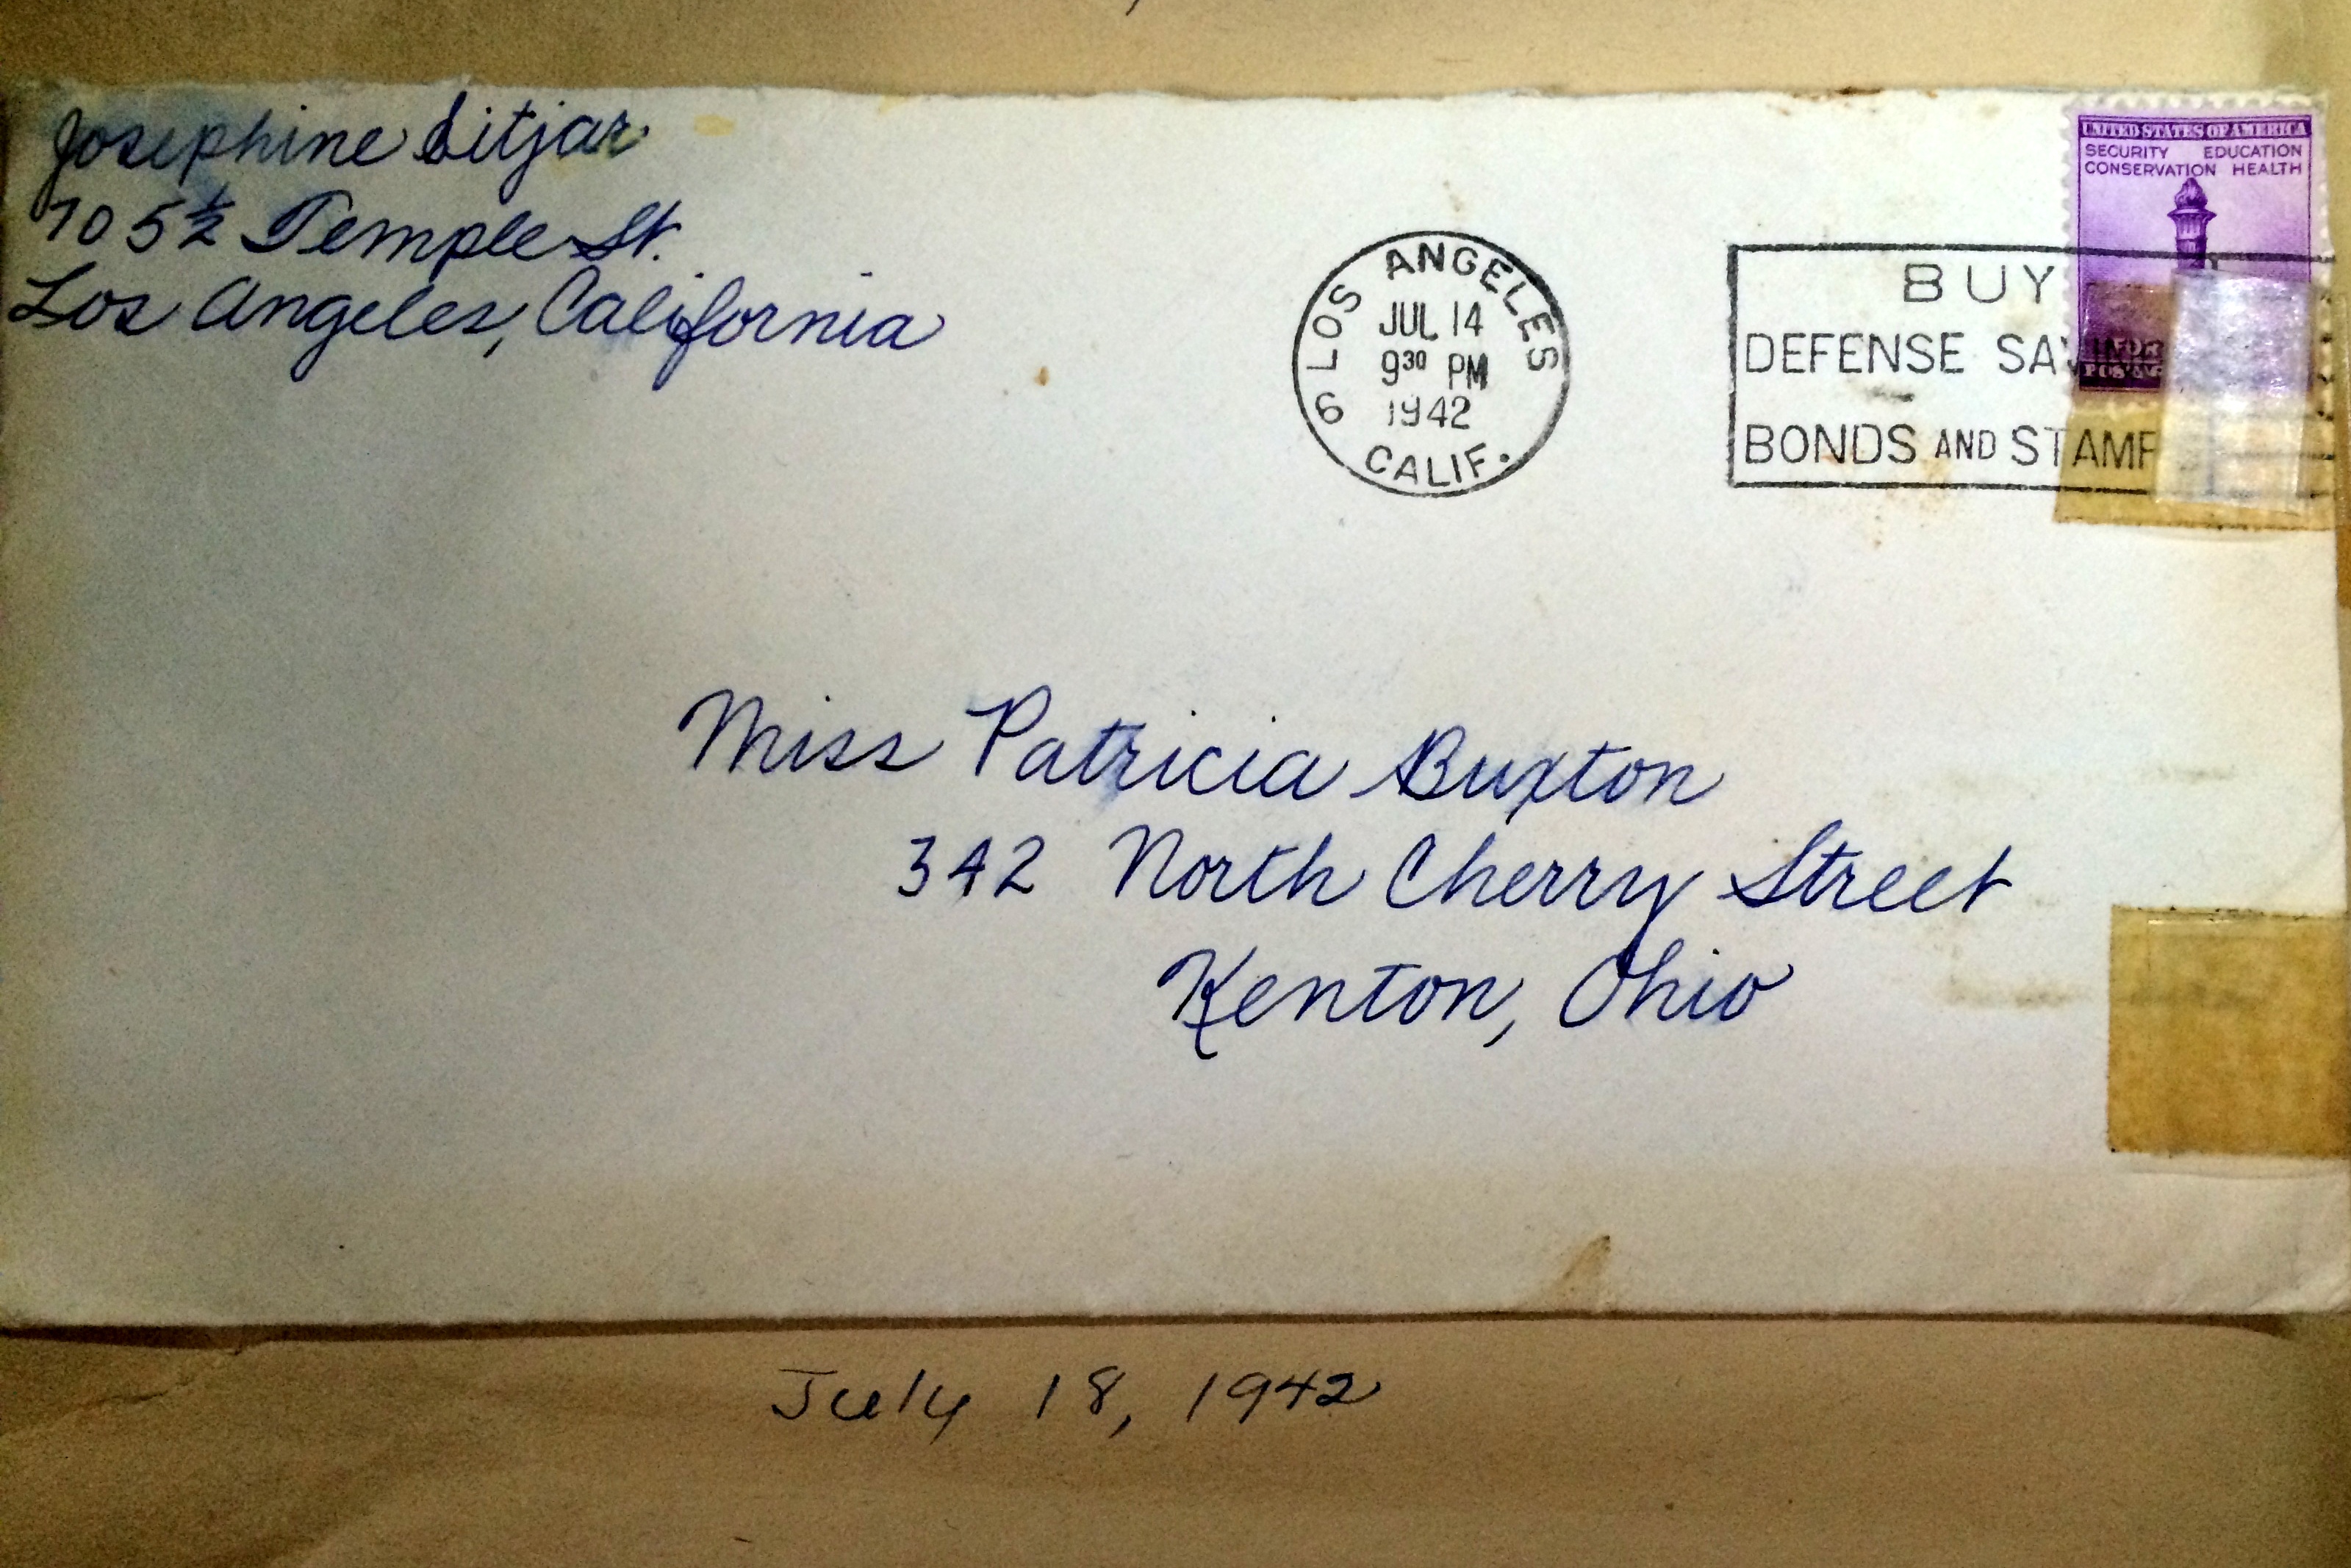 Josephine Sitjar
705½ Temple St.
Los Angeles, California
UNITED STATES OF AMERICA
SECURITY EDUCATION
CONSERVATION HEALTH
LOS ANGELES
JUL 14
9 30 PM
1942
6
CALIF.
BUY
DEFENSE SAVIN
BONDS AND STAMP
FOR
POSTAG
Miss Patricia Buxton
342 North Cherry Street
Kenton, Ohio
July 18, 1942